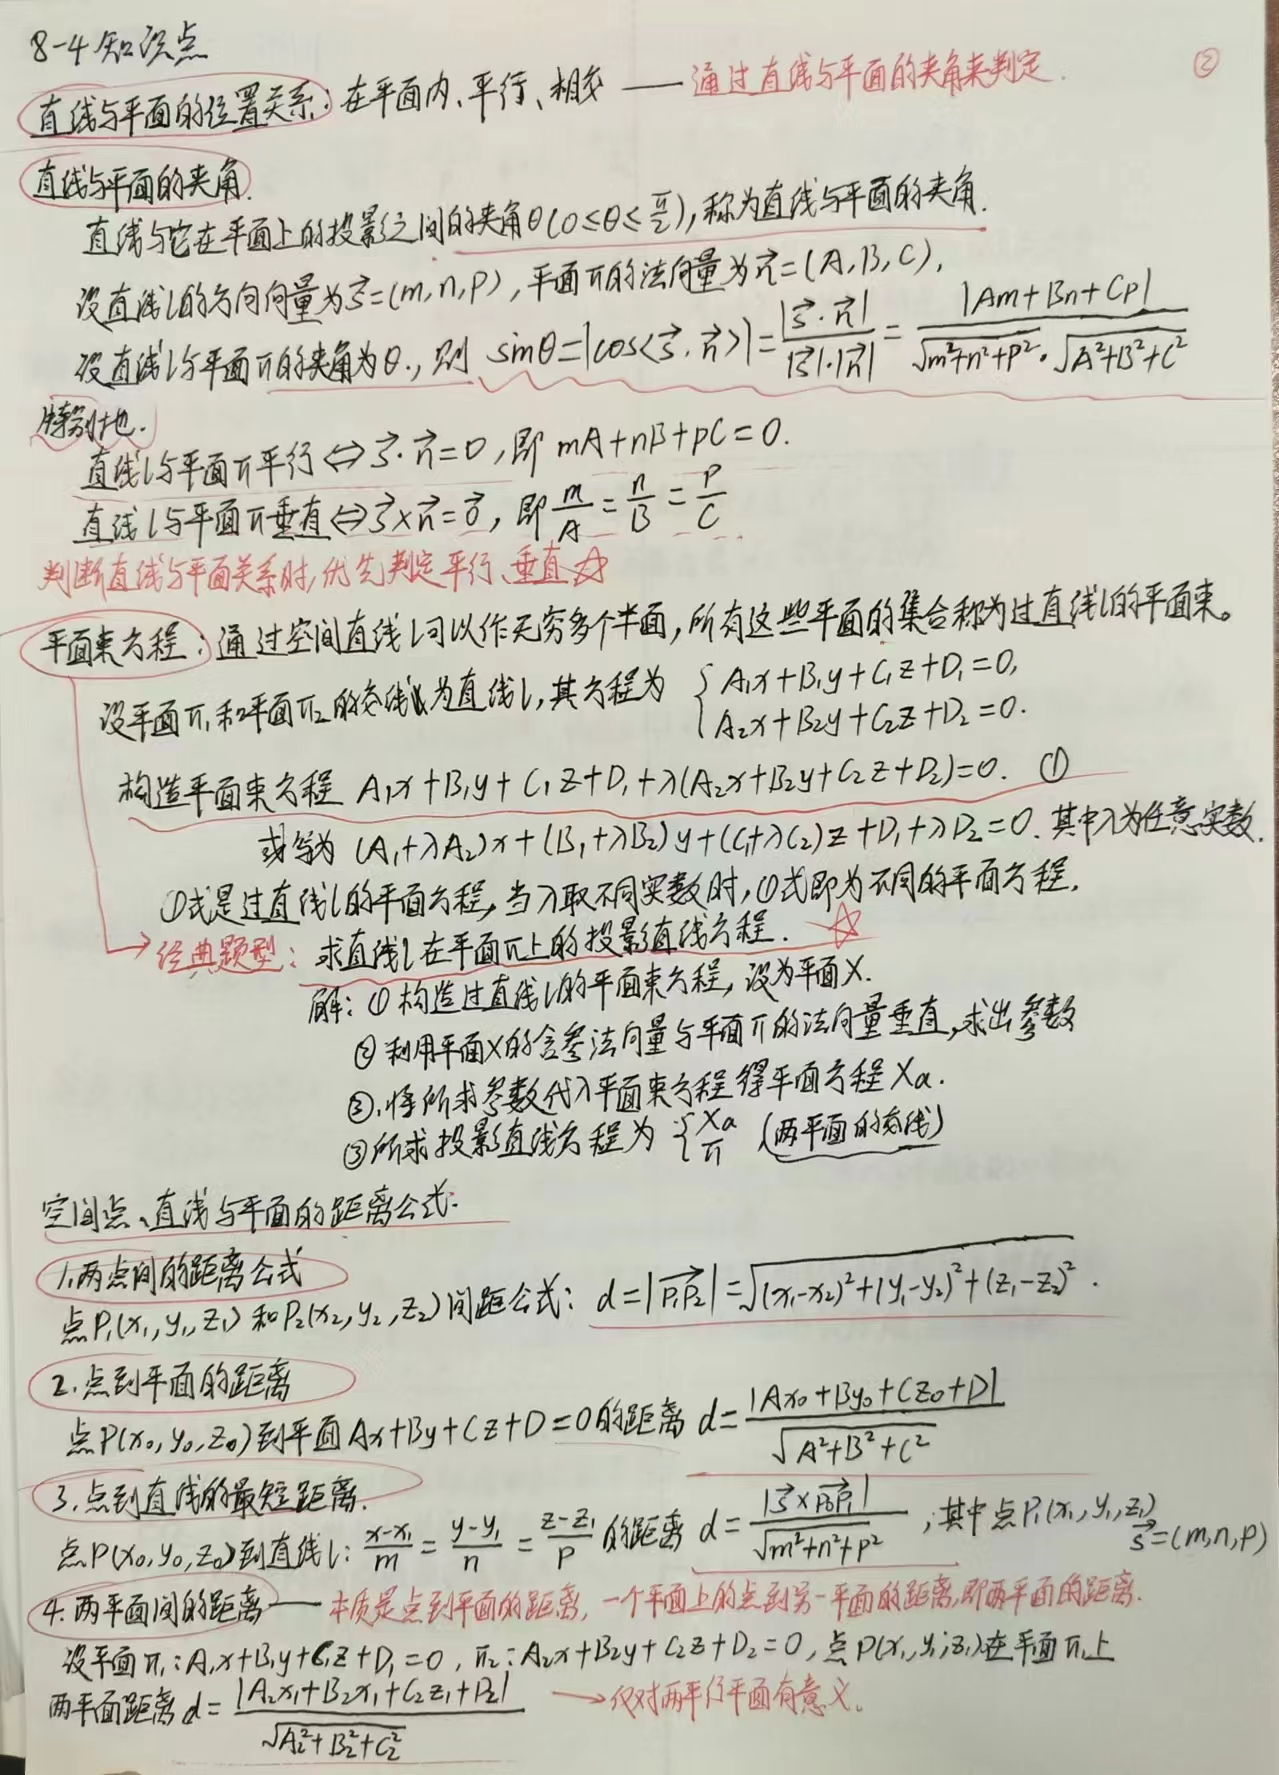 8-4知识点
②
直线与平面的位置关系:在平面内、平行、相交 —— 通过直线与平面的夹角来判定.
直线与平面的夹角.
直线与它在平面上的投影之间的夹角θ(0≤θ≤π/2),称为直线与平面的夹角.
设直线l的方向向量为s⃗=(m,n,p),平面π的法向量为n⃗=(A,B,C),
设直线l与平面π的夹角为θ.,则 sinθ=|cos<s⃗,n⃗>|=|s⃗·n⃗|/|s⃗|·|n⃗|=|Am+Bn+Cp|/√(m²+n²+p²)·√(A²+B²+C²)
特别地.
直线l与平面π平行⇔s⃗·n⃗=0,即 mA+nB+pC=0.
直线l与平面π垂直⇔s⃗×n⃗=0⃗,即 m/A=n/B=p/C
判断直线与平面关系时,优先判定平行、垂直☆
平面束方程:通过空间直线l可以作无穷多个平面,所有这些平面的集合称为过直线l的平面束。
设平面π₁和平面π₂的交线为直线l,其方程为 { A₁x+B₁y+C₁z+D₁=0,
A₂x+B₂y+C₂z+D₂=0.
构造平面束方程 A₁x+B₁y+C₁z+D₁+λ(A₂x+B₂y+C₂z+D₂)=0. ①
或写为 (A₁+λA₂)x+(B₁+λB₂)y+(C₁+λC₂)z+D₁+λD₂=0.其中λ为任意实数.
①式是过直线l的平面方程,当λ取不同实数时,①式即为不同的平面方程.
→经典题型:求直线l在平面π上的投影直线方程. ☆
解:①构造过直线l的平面束方程,设为平面X.
②利用平面X的含参法向量与平面π的法向量垂直,求出参数
②.将所求参数代入平面束方程得平面方程Xa.
③所求投影直线方程为 {Xa π (两平面的交线)
空间点、直线与平面的距离公式.
1.两点间的距离公式
点P₁(x₁,y₁,z₁)和P₂(x₂,y₂,z₂)间距公式: d=|P₁P₂⃗|=√((x₁-x₂)²+(y₁-y₂)²+(z₁-z₂)²).
2.点到平面的距离
点P(x₀,y₀,z₀)到平面Ax+By+Cz+D=0的距离 d=|Ax₀+By₀+Cz₀+D|/√(A²+B²+C²)
3.点到直线的最短距离.
点P(x₀,y₀,z₀)到直线l: (x-x₁)/m=(y-y₁)/n=(z-z₁)/p的距离 d=|s⃗×P₀P₁⃗|/√(m²+n²+p²) ,其中点P₁(x₁,y₁,z₁) s⃗=(m,n,p)
4.两平面间的距离——本质是点到平面的距离,一个平面上的点到另一平面的距离,即两平面的距离.
设平面π₁:A₁x+B₁y+C₁z+D₁=0,π₂:A₂x+B₂y+C₂z+D₂=0,点P(x₁,y₁,z₁)在平面π₁上
两平面距离d=|A₂x₁+B₂x₁+C₂z₁+D₂|/√(A₂²+B₂²+C₂²) →仅对两平行平面有意义。